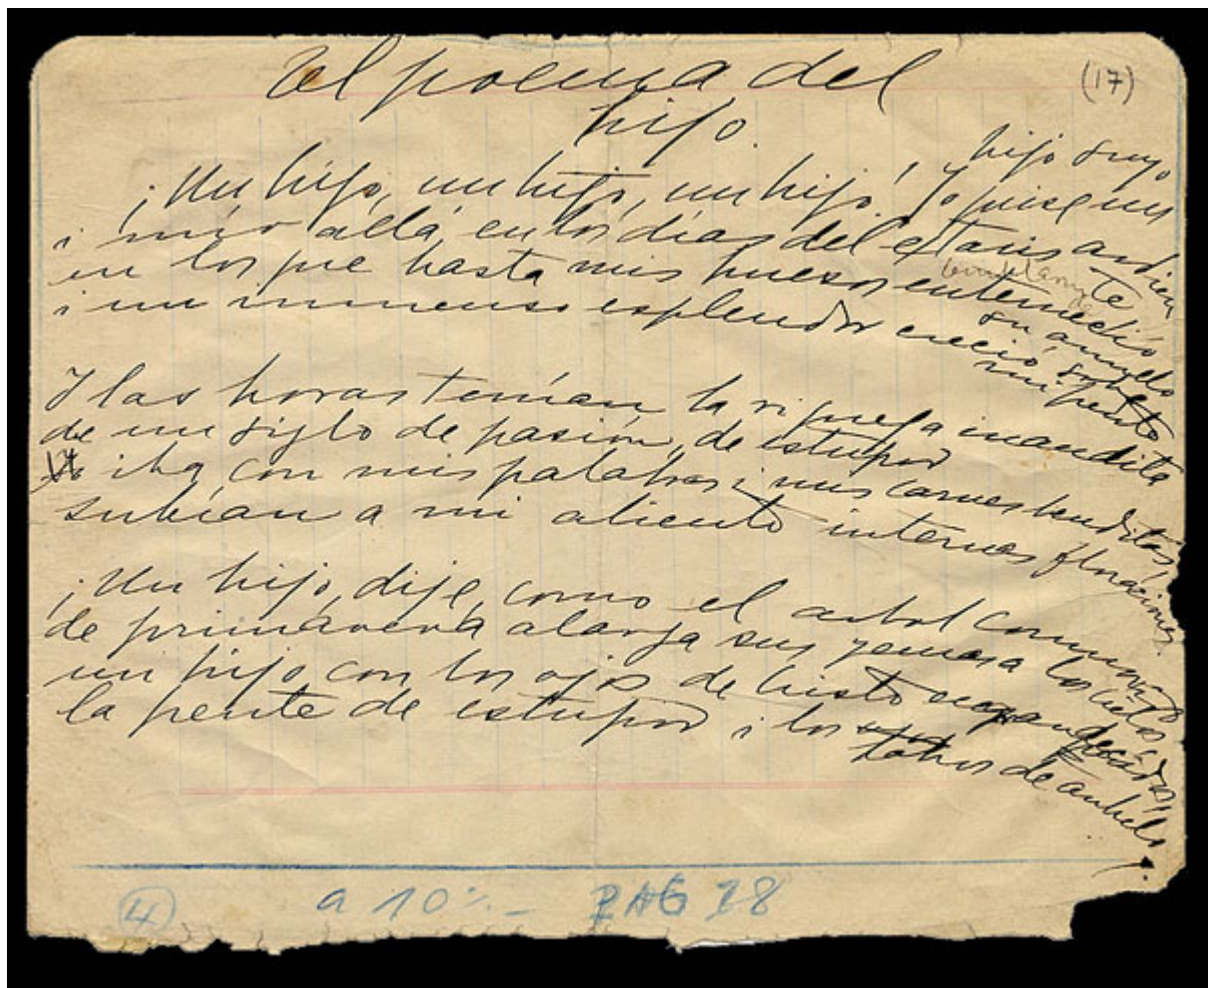 El poema del
hijo.
(17)
¡Un hijo, un hijo, un hijo! Yo quise un hijo suyo
i mío allá, en los días del éxtasis ardiente
en los que hasta mis huesos enterneció su arrullo
i un inmenso esplendor creció sobre mi frente
I las horas tenían la riqueza inaudita
de un siglo de pasión, de estupor
iba con mis palabras i mis carnes benditas,
subían a mi aliento internas floraciones.
¡Un hijo, dije, como el arbol conmovido
de primavera alarga sus yemas a los cielos
un hijo con los ojos de Cristo engrandecidos,
la frente de estupor i los labios de anhelo
(4) a 10 PAG 18